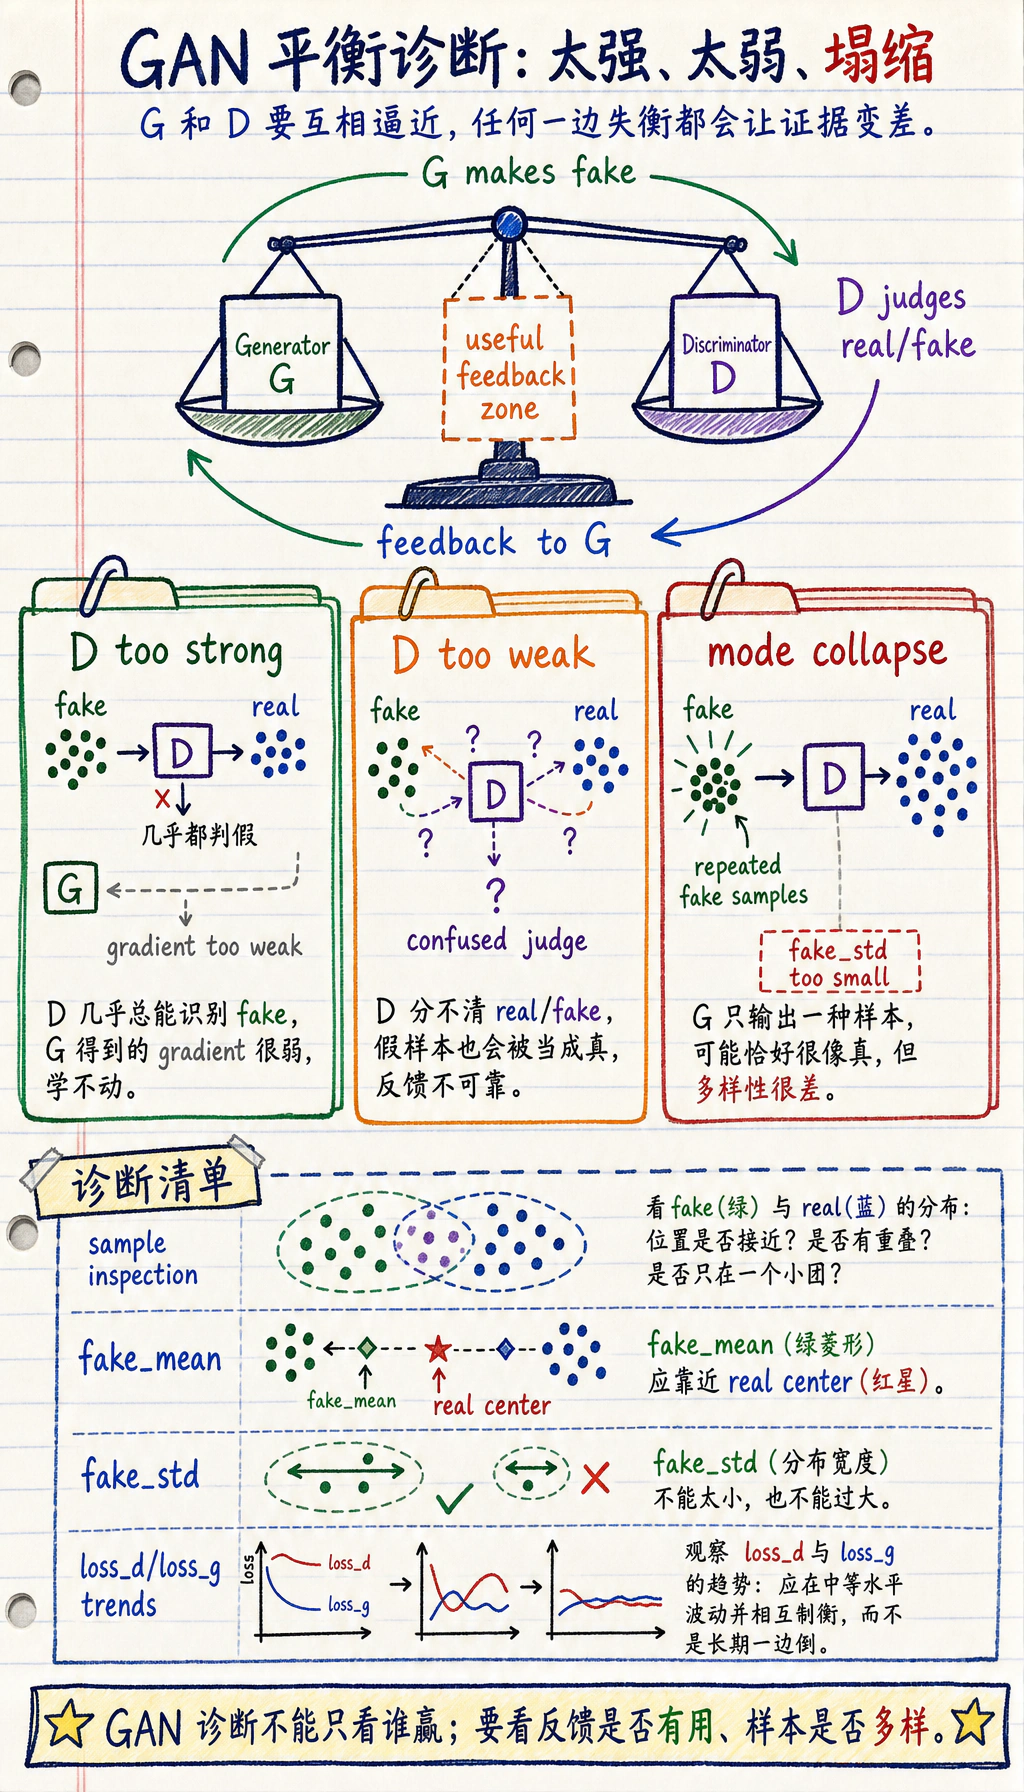 GAN 平衡诊断：太强、太弱、塌缩
G 和 D 要互相逼近，任何一边失衡都会让证据变差。
G makes fake
D judges
real/fake
Generator
G
useful
feedback
zone
Discriminator
D
feedback to G
D too strong
fake
real
D
×
几乎都判假
G
gradient too weak
D 几乎总能识别 fake，
G 得到的 gradient 很弱，
学不动。
D too weak
fake
real
?
?
D
?
?
?
confused judge
D 分不清 real/fake，
假样本也会被当成真，
反馈不可靠。
mode collapse
fake
real
D
repeated
fake samples
fake_std
too small
G 只输出一种样本，
可能恰好很像真，但
多样性很差。
诊断清单
sample
inspection
看 fake（绿）与 real（蓝）的分布：
位置是否接近？是否有重叠？
是否只在一个小团？
fake_mean
fake_mean
real center
fake_mean（绿菱形）
应靠近 real center（红星）。
fake_std
fake_std（分布宽度）
不能太小，也不能过大。
loss_d/loss_g
trends
loss
loss_d
loss_g
观察 loss_d 与 loss_g
的趋势：应在中等水平
波动并相互制衡，而不
是长期一边倒。
GAN 诊断不能只看谁赢；要看反馈是否有用、样本是否多样。